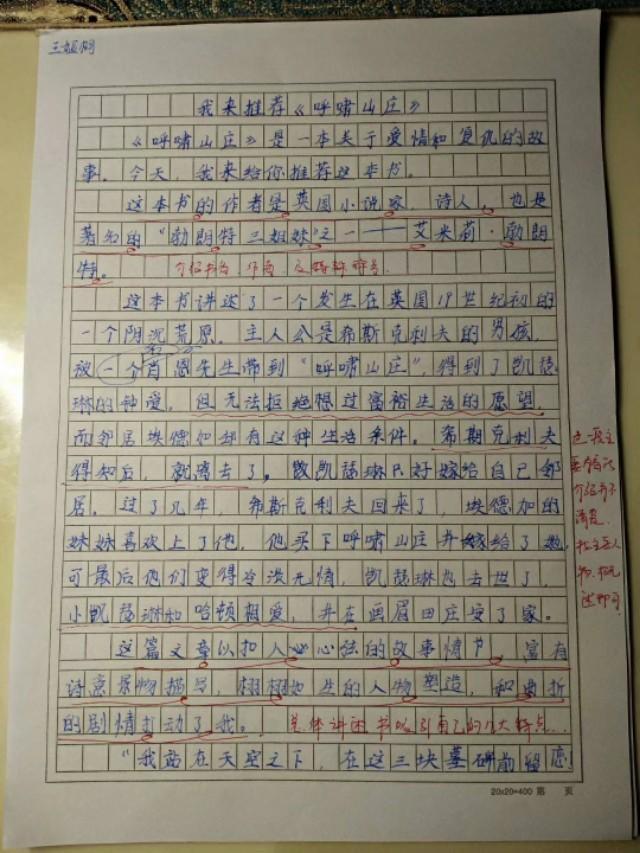 我来推荐《呼啸山庄》
《呼啸山庄》是一本关于爱情和复仇的故
事。今天，我来给你推荐这本书。
这本书的作者是英国小说家，诗人，也是
著名的“勃朗特三姐妹”之一——艾米莉·勃朗
特。
介绍书名、作者、及
这本书讲述了一个发生在英国19世纪初的
一个阴沉荒原，主人公是希斯克利夫的男孩，
被一个肖恩先生带到“呼啸山庄”，得到了凯瑟
琳的钟爱，但无法拒绝想过富裕生活的愿望，
而邻居埃德加却有这种生活条件。希斯克利夫
得知后，就离去了，凯瑟琳只好嫁给自己邻
居。过了几年，希斯克利夫回来了，埃德加的
妹妹喜欢上了他，他买下呼啸山庄并嫁给了她，
可最后他们变得冷漠无情，凯瑟琳也去世了，
小凯瑟琳和哈顿相爱，并在画眉田庄安了家。
这一段主
介绍有
清楚
这篇文章以扣人心弦的故事情节，富有
诗意景物描写，栩栩如生的人物塑造，和曲折
的剧情打动了我。
总体讲述书吸引自己的几大特点
“我站在天空之下，在这三块墓碑前留恋！
20x20=400 第 页